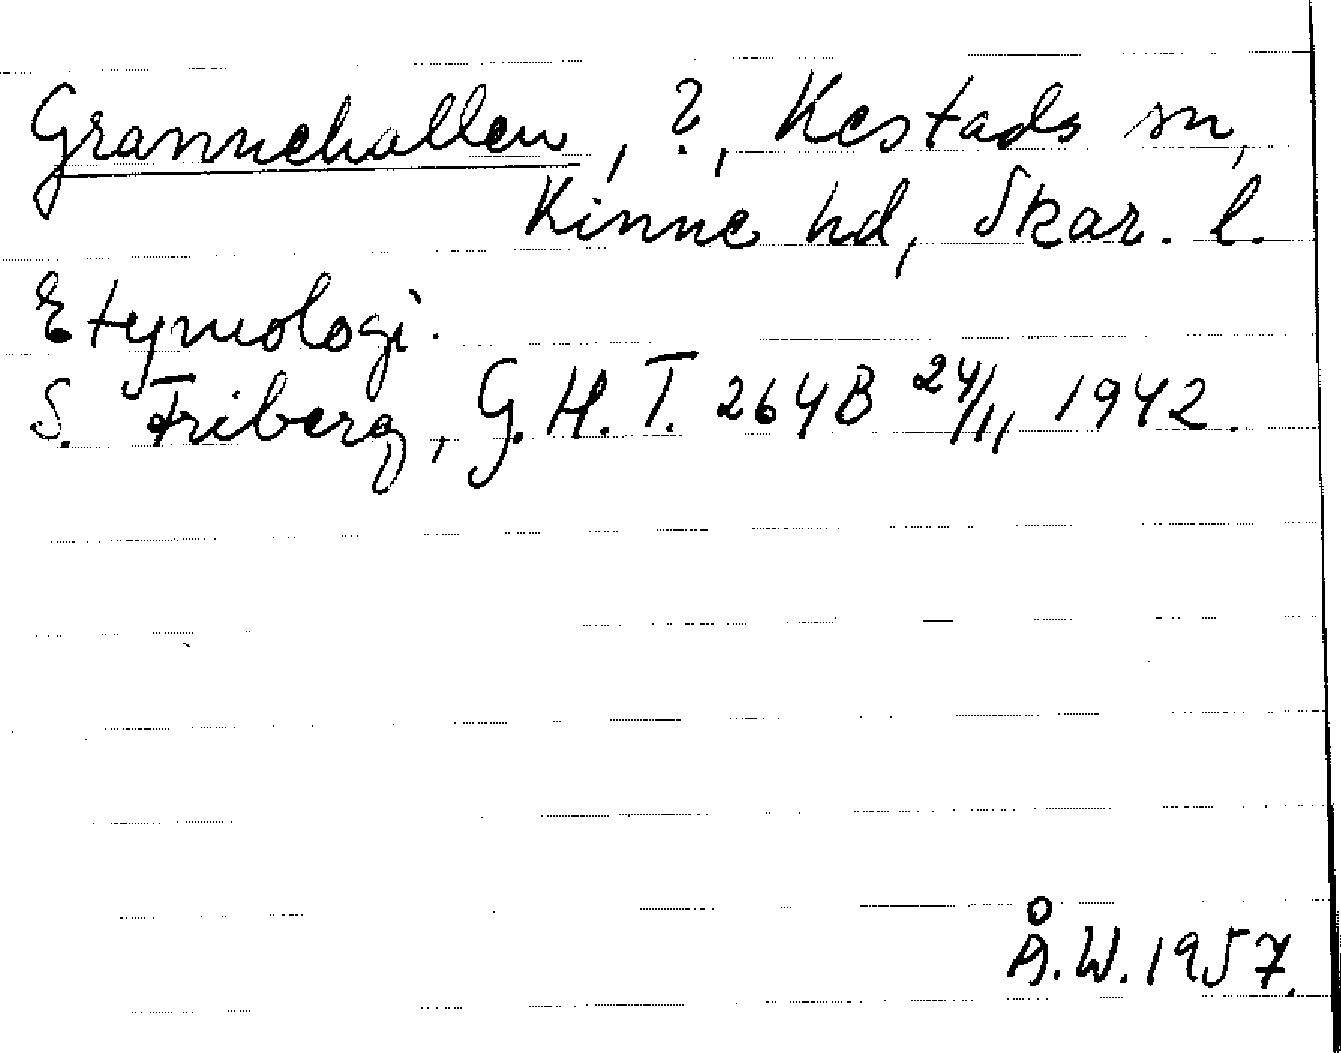 Grannehallen, ?, Kestads sn,
Kinne hd, Skar. l.
Etymologi.
S. Friberg, G.H.T. 264B 24/11, 1942.
Å.W. 1957.